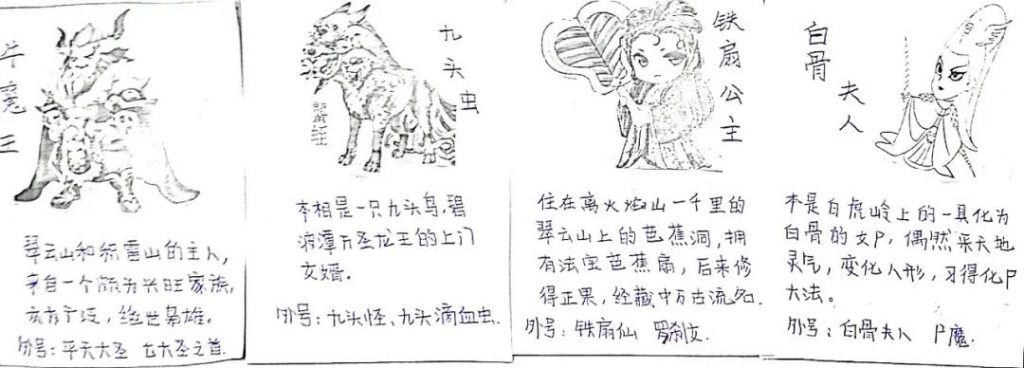 牛魔王
翠云山和积雷山的主人,
来自一个颇为兴旺家族,
绝世枭雄.
外号:平天大圣 七大圣之首.
九头虫
本相是一只九头鸟,碧
波潭万圣龙王的上门
女婿.
外号:九头怪、九头滴血虫.
铁扇公主
住在离火焰山一千里的
翠云山上的芭蕉洞,拥
有法宝芭蕉扇,后来修
得正果,经藏中万古流名.
外号:铁扇仙 罗刹女.
白骨
夫人
本是白虎岭上的一具化为
白骨的女尸,偶然采天地
灵气,变化人形,习得化尸
大法.
外号:白骨夫人 尸魔.